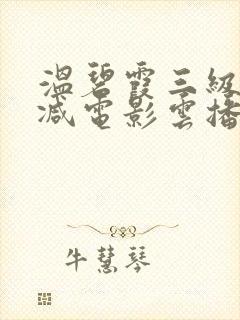 温碧霞三級
减電影雲播
牛慧琴